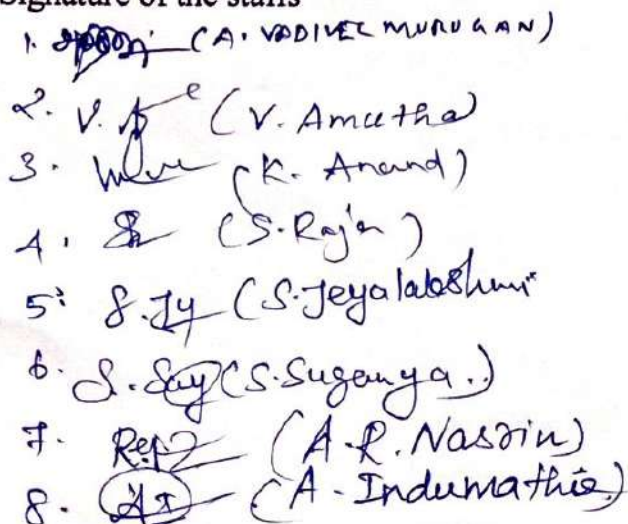 Signature of the staffs
1. (A. VADIVEL MURUGAN)
2. V. (V. Amutha)
3. (K. Anand)
4. (S. Raja)
5. S. Jy (S. Jeyalakshmi
6. S. Sug (S. Suganya.)
7. (A.R. Nasrin)
8. (A. Indumathi)